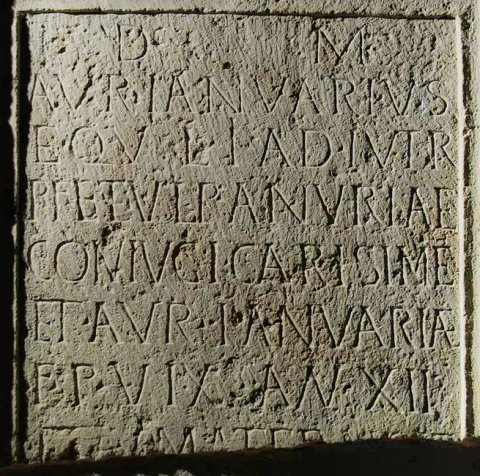 D M
AVR·IANVARIVS
EQV LI AD·IVTR
PF ET VLP ANVRIAE
CONIVGI CARISIME
ET·AVR·IANVARIÆ
VIX AN XII